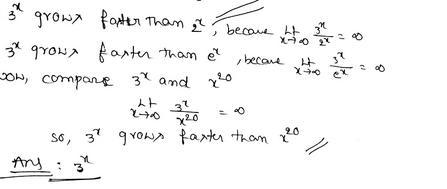 3^x grows faster than 2^x, because Lt x→∞ 3^x/2^x = ∞
3^x grows faster than e^x, because Lt x→∞ 3^x/e^x = ∞
now, compare 3^x and x^20
Lt x→∞ 3^x/x^20 = ∞
so, 3^x grows faster than x^20
Ans : 3^x